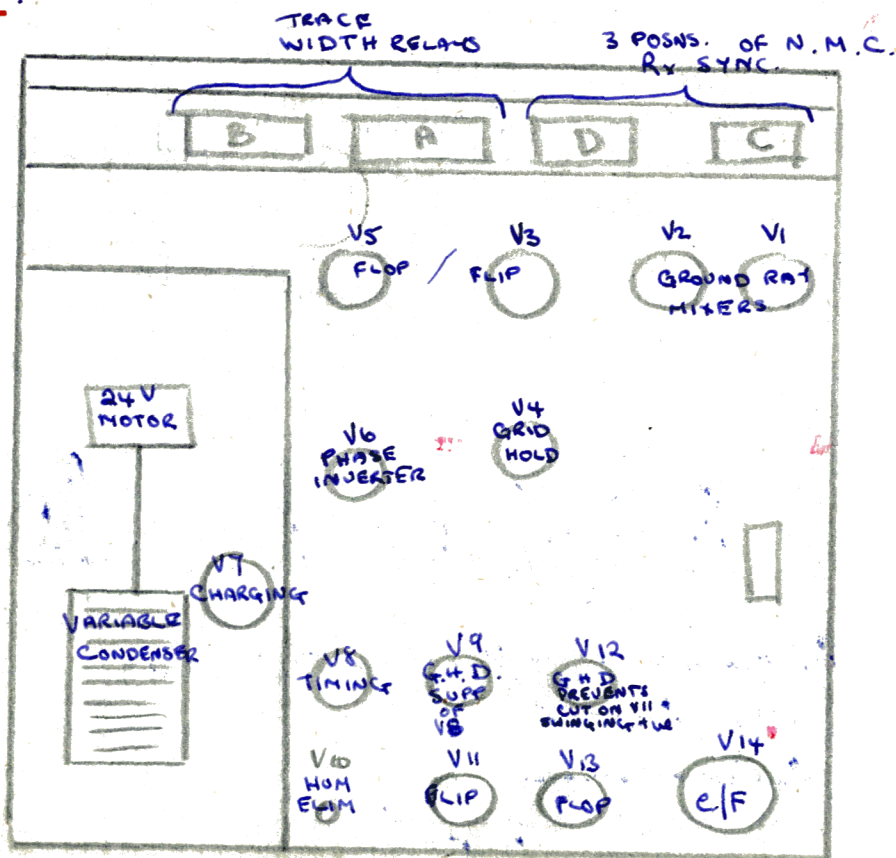 TRACE
WIDTH RELAYS
3 POSNS. OF N.M.C.
Rx SYNC.
B
A
D
C
V5
FLOP
/
V3
FLIP
V2
V1
GROUND RAY
MIXERS
24V
MOTOR
V6
PHASE
INVERTER
V4
GRID
HOLD
V7
CHARGING
VARIABLE
CONDENSER
V8
TIMING
V9
G.H.D.
SUPP
OF
V8
V12
G H D
PREVENTS
CUT ON V11
SWINGING +VE
V10
HUM
ELIM
V11
FLIP
V13
FLOP
V14
C/F